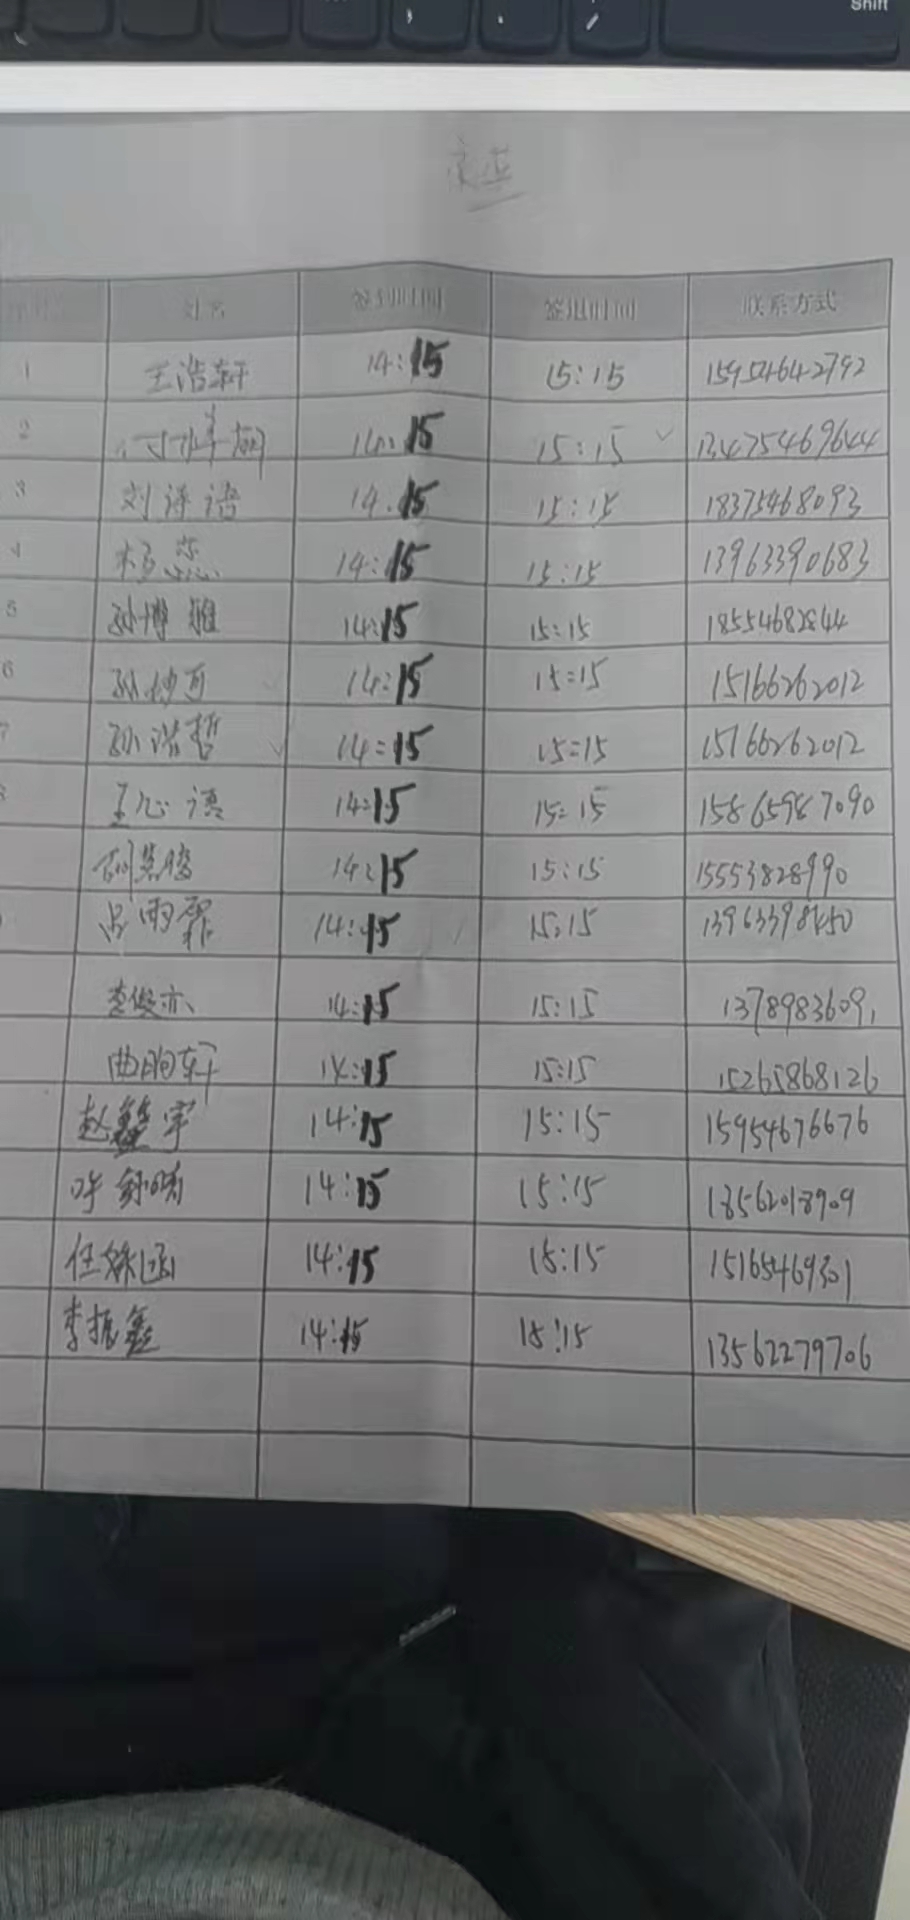 Shift
姓名 签到时间 签退时间 联系方式
1 王浩轩 14:15 15:15 15954642792
2 14:15 15:15 13475469644
3 刘诗语 14:15 15:15 18375468093
4 14:15 15:15 13963390683
5 孙博雅 14:15 15:15 18554682844
6 14:15 15:15 15166262012
7 孙浩哲 14:15 15:15 15166262012
8 王心语 14:15 15:15 15865987090
14:15 15:15 15553828990
吕雨霏 14:15 15:15
李俊亦 14:15 15:15 13789836091
曲昫轩 14:15 15:15 15265868126
赵鑫宇 14:15 15:15 15954676676
14:15 15:15 18562018909
任姝函 14:15 15:15 15165469301
李振鑫 14:15 15:15 13562279706